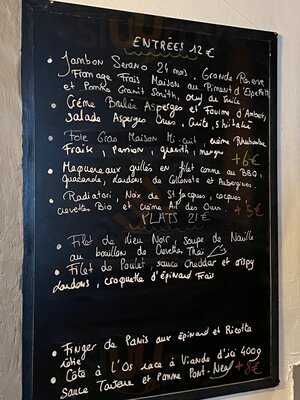 ENTRÉES 12 €
• Jambon Serano 24 mois, Grande Réserve
Fromage Frais Maison au Piment d'Espelette
et Pomme Granit Smith,
• Crème Brulée Asperges et Fourme d'Ambert,
salade Asperges Crues, Cuite, shiitaké
• Foie Gras Maison Mi-cuit, crème Rhubarbe
Fraise, passion, meringue
+6€
• Maquereaux grillés en filet comme au BBQ,
et Aubergines
• Radiatori, Noix de St Jacques, coques,
crevettes Bio et crème Ail des Ours. +5€
PLATS 21€
• Filet de Lieu Noir, soupe de
au bouillon de Crevettes Thaï
• Filet de Poulet, sauce Cheddar et crispy
Lardons, croquette d'épinard Frais
• Finger de Panis aux épinard et Ricotta
• Côte à L'Os race à Viande d'ici 400g
sauce Tartare et Pomme Pont-Neuf +8€